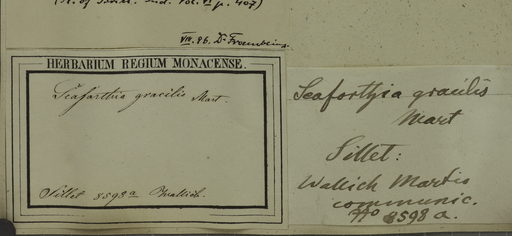 VIII. 86. Dr
HERBARIUM REGIUM MONACENSE.
Seaforthia gracilis Mart.
Sillet 8598a Wallich.
Seaforthia gracilis
Mart
Sillet:
Wallich Martio
communic.
No 8598 a.